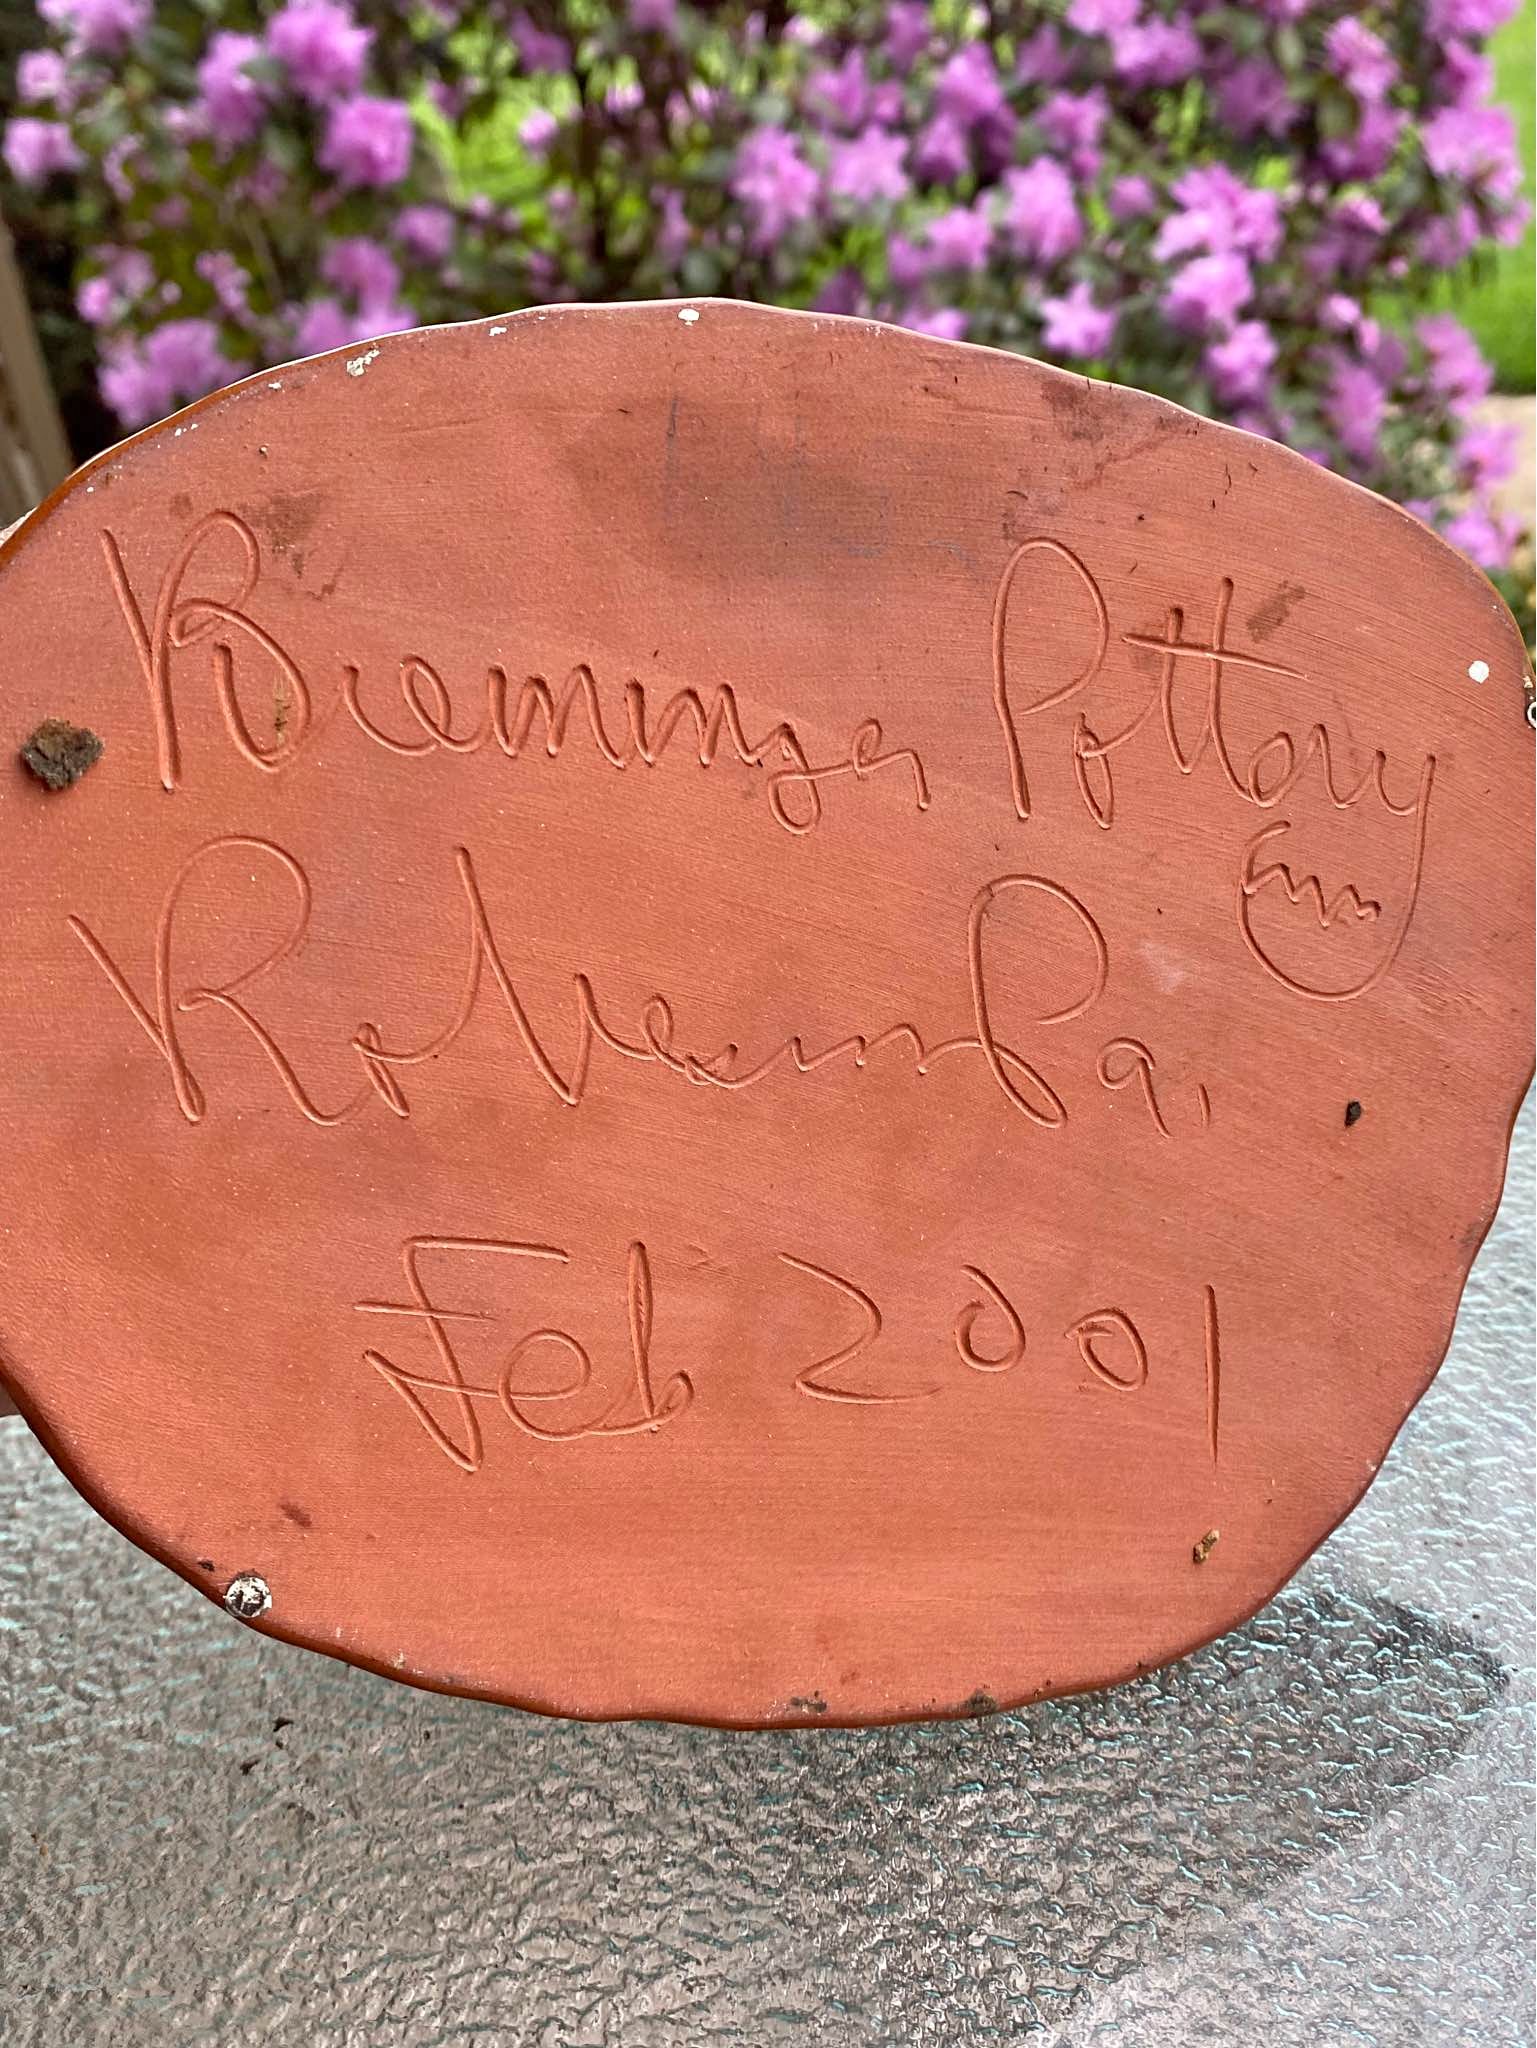 Breininger Pottery
Robesonia Pa.
Feb 2001